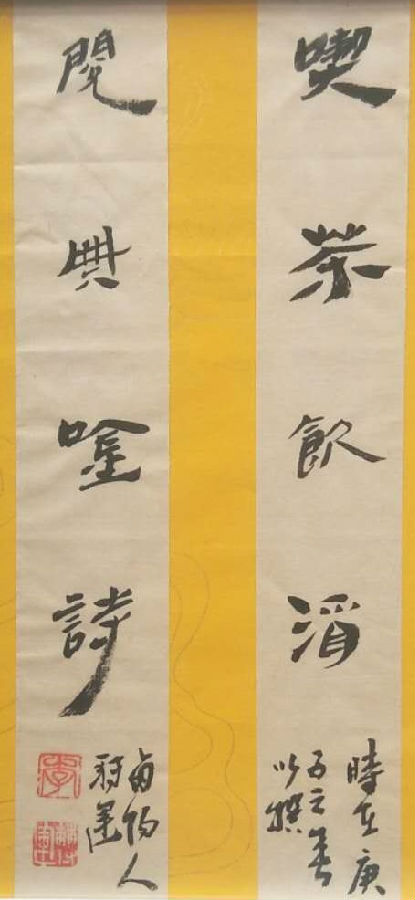 喫茶飲酒
時在庚
子之春
以撰
閱典唫詩
人